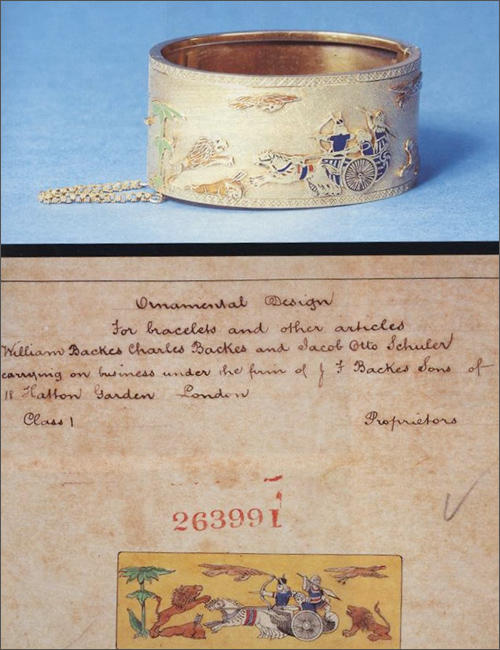 Ornamental Design
For bracelets and other articles
William Backes Charles Backes and Jacob Otto Schuler
carrying on business under the firm of J F Backes Sons of
18 Hatton Garden London
Class 1 Proprietors
263991